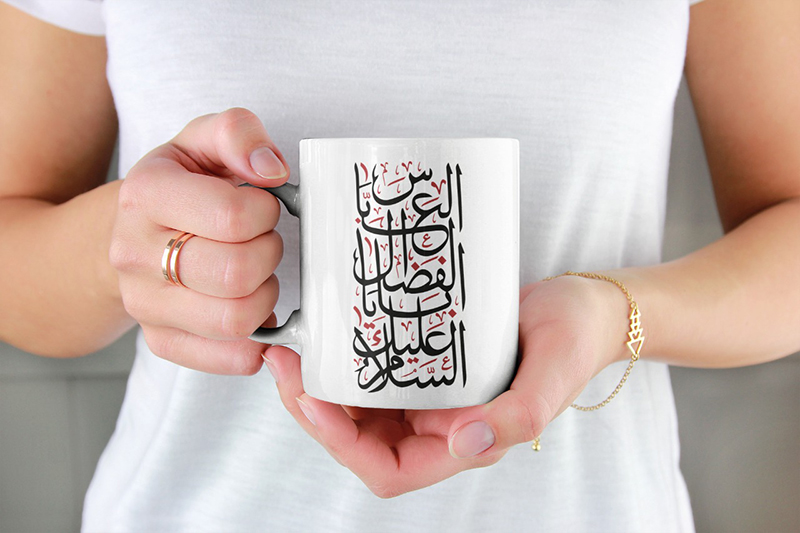 السَّلام عليك
يا ابا الفضل
العبّاس